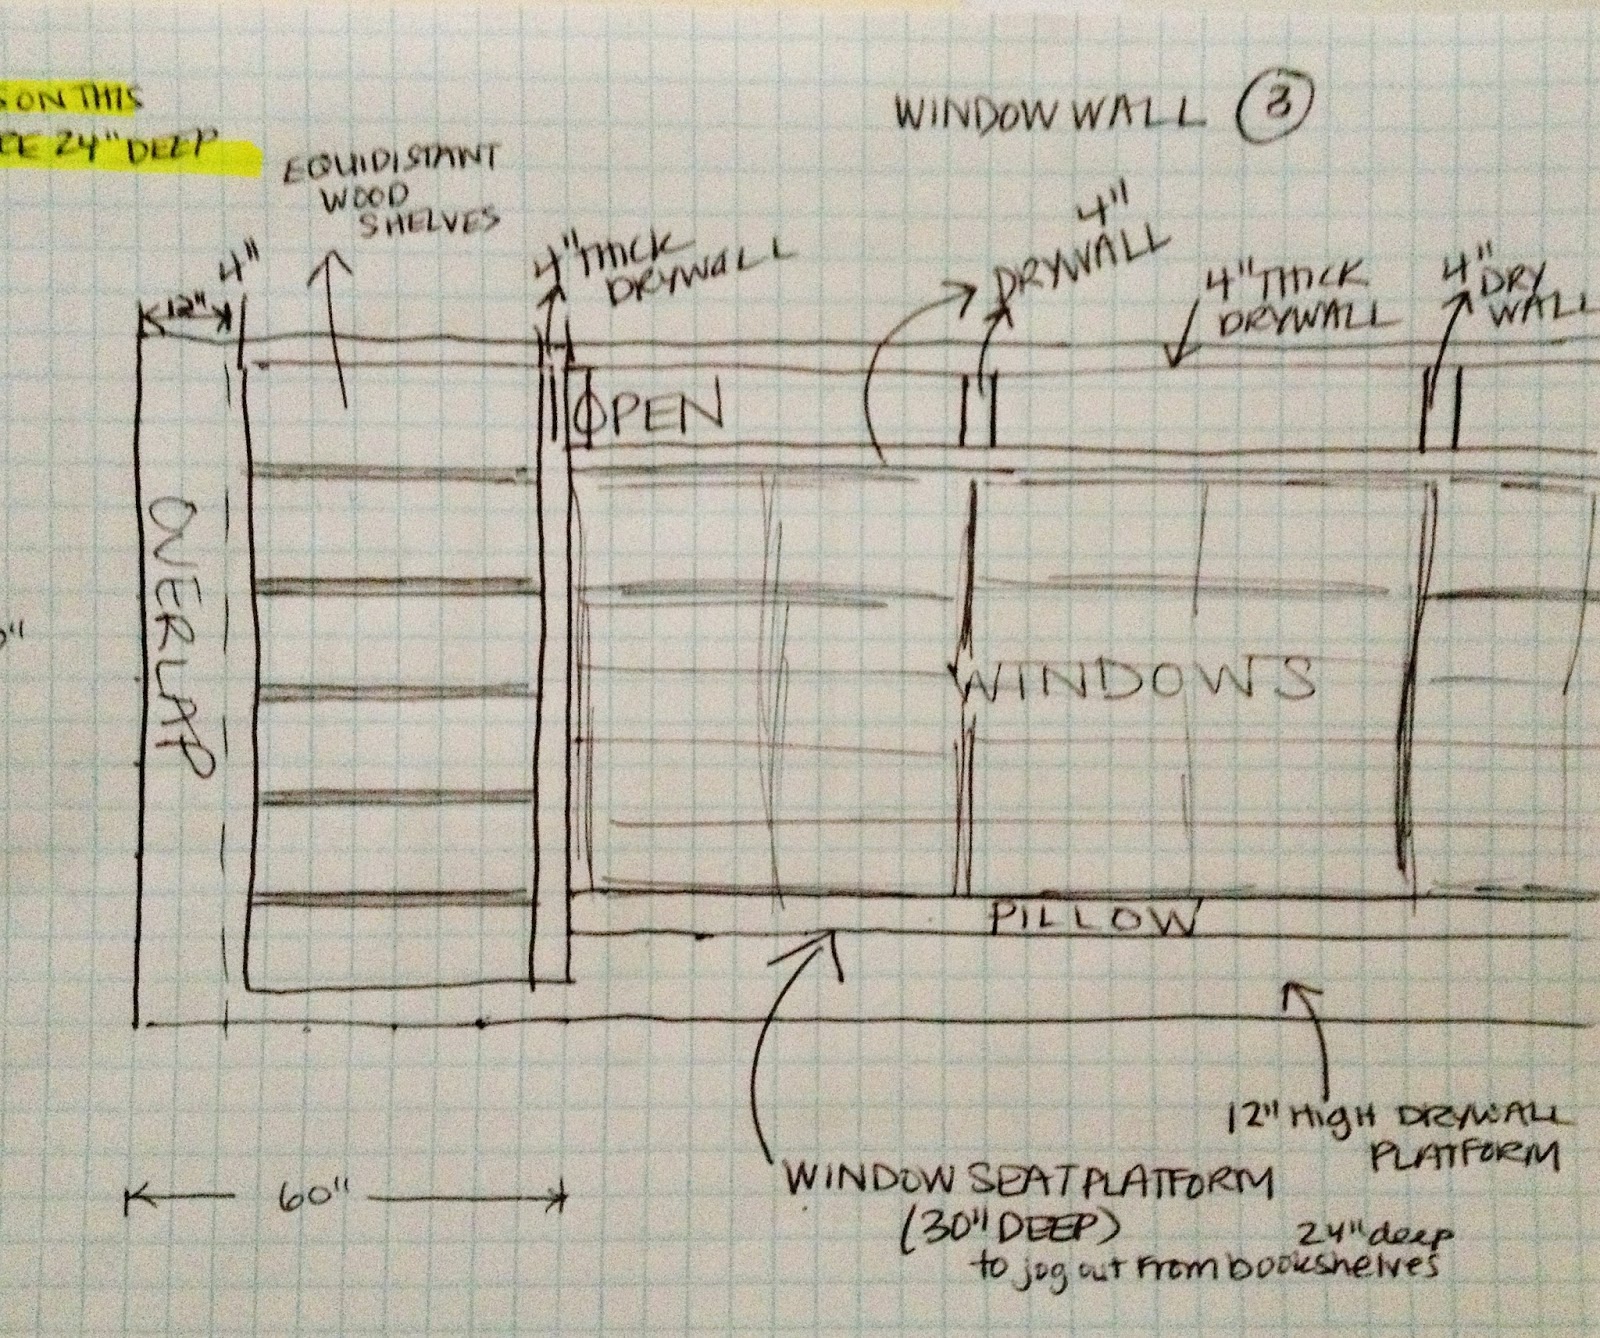 WINDOW WALL 3
SON THIS
24" DEEP
EQUIDISTANT
WOOD
SHELVES
12"
4"
4" THICK
DRYWALL
4"
DRYWALL
4" THICK
DRYWALL
4" DRY
WALL
OPEN
OVERLAP
WINDOWS
PILLOW
12" HIGH DRYWALL
PLATFORM
60"
WINDOW SEAT PLATFORM
(30" DEEP) 24" deep
to jog out from bookshelves